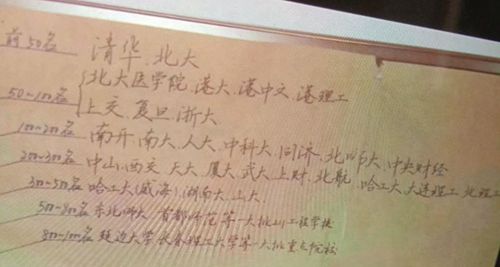 前50名 清华、北大
北大医学院、港大、港中文、港理工
50~100名 上交、复旦、浙大
100~200名 南开、南大、人大、中科大、同济、北师大、中央财经
200~300名 中山、西交、天大、厦大、武大、上财、北航、哈工大、大连理工、北理
300~500名 哈工大(威海)、湖南大、山大、
500~800名 东北师大、首都师范等一大批211工程学校
800~1000名 延边大学、长春理工大学等一大批重点院校